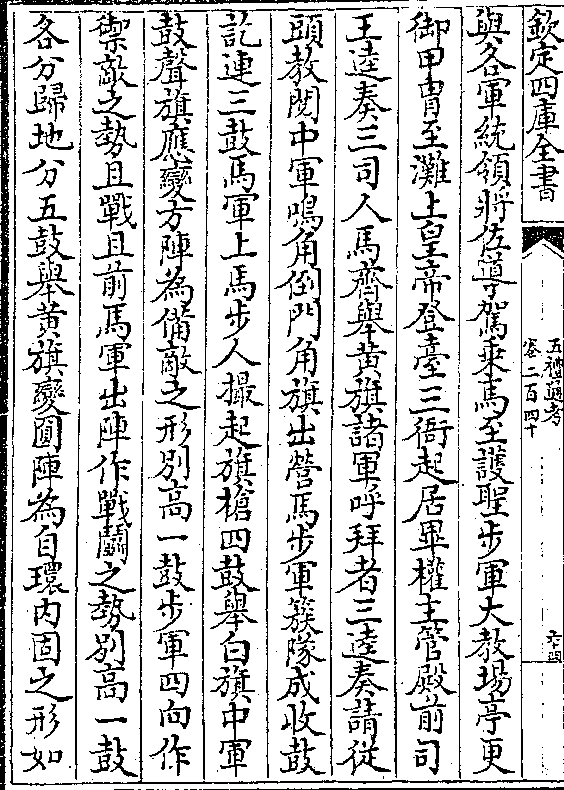 欽定四庫全書
五禮通考
卷二百四十
與各軍統領將佐導駕乘馬至護聖步軍大教場亭更
御甲胄至灘上皇帝登臺三衙起居畢權主管殿前司
王逵奏三司人馬齊舉黃旗諸軍呼拜者三逵奏請從
頭教閱中軍鳴角倒門角旗出營馬步軍簇隊成收鼓
訖連三鼓馬軍上馬步人撮起旗槍四鼓舉白旗中軍
鼓聲旗應變方陣為備敵之形别高一鼓步軍四向作
禦敵之勢且戰且前馬軍出陣作戰鬭之勢别高一鼓
各分歸地分五鼓舉黃旗變圓陣為自環内固之形如